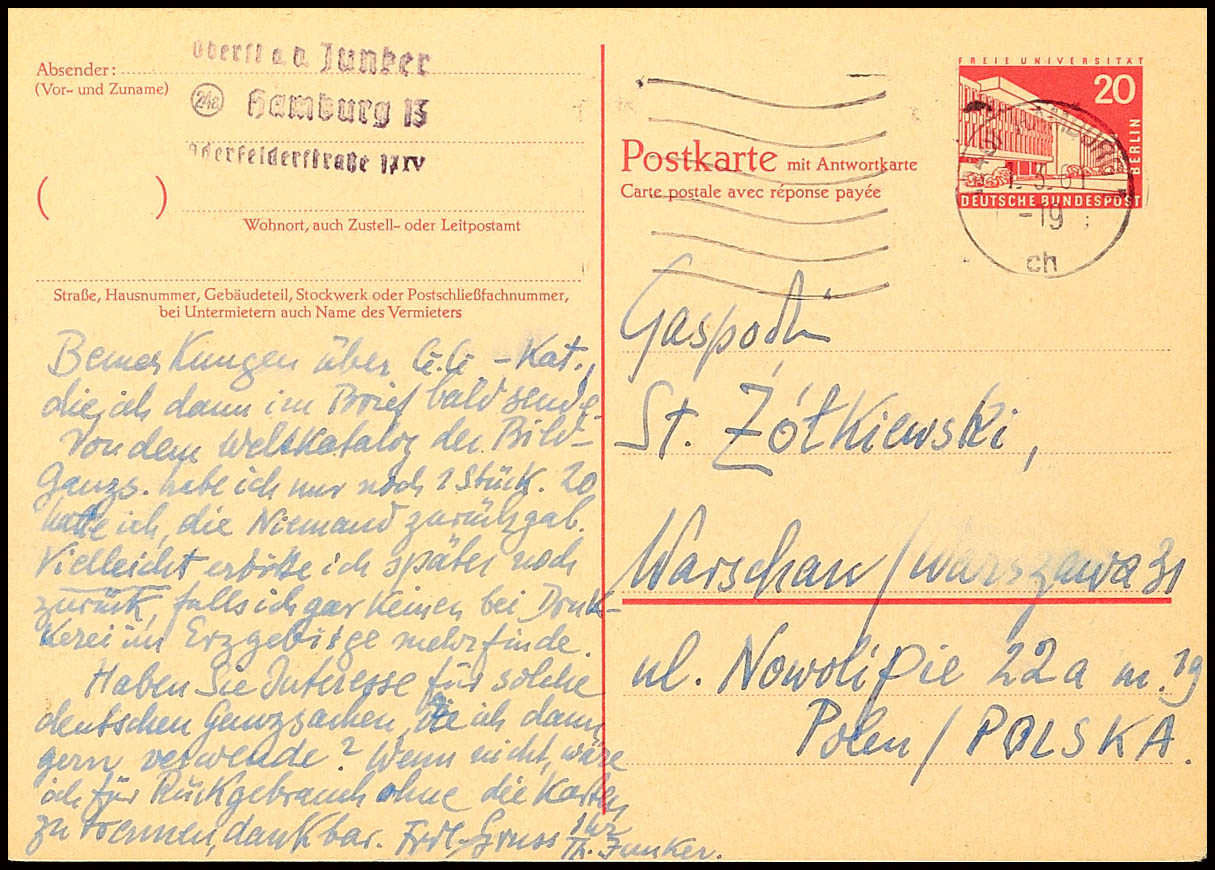 Absender:
(Vor- und Zuname)
Oberst a.D. Junker
24a Hamburg 13
Oderfelderstraße 17 IV
Wohnort, auch Zustell- oder Leitpostamt
Straße, Hausnummer, Gebäudeteil, Stockwerk oder Postschließfachnummer,
bei Untermietern auch Name des Vermieters
Bemerkungen über -Kat.,
die ich dann im Brief bald sende.
Von dem Weltkatalog der Bild-
Ganzs. habe ich nur noch 1 Stück. 20
hatte ich, die Niemand zurückgab.
Vielleicht erbitte ich später noch
zurück, falls ich gar keinen bei Druk-
kerei im Erzgebirge mehr finde.
Haben Sie Interesse für solche
deutschen Ganzsachen, die ich dann
gern verwende? Wenn nicht, wäre
ich für Rückgebrauch ohne die Karten
zu trennen, dankbar. Frdl. Gruss Ihr
Th. Junker.
FREIE UNIVERSITÄT
20
BERLIN
DEUTSCHE BUNDESPOST
HAMBURG
1.3.61
-19
ch
Postkarte mit Antwortkarte
Carte postale avec réponse payée
Gaspodin
St. Żółkiewski,
Warschau / Warszawa 31
ul. Nowolipie 22a m. 19
Polen / POLSKA.